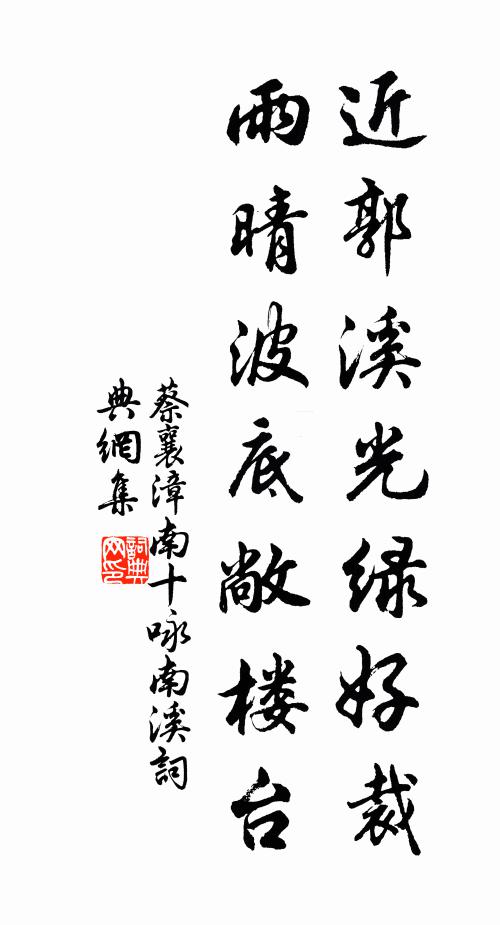 近郭溪光绿好裁
雨晴波底敞楼台
蔡襄漳南十咏南溪詞
典網集
詞典
网印